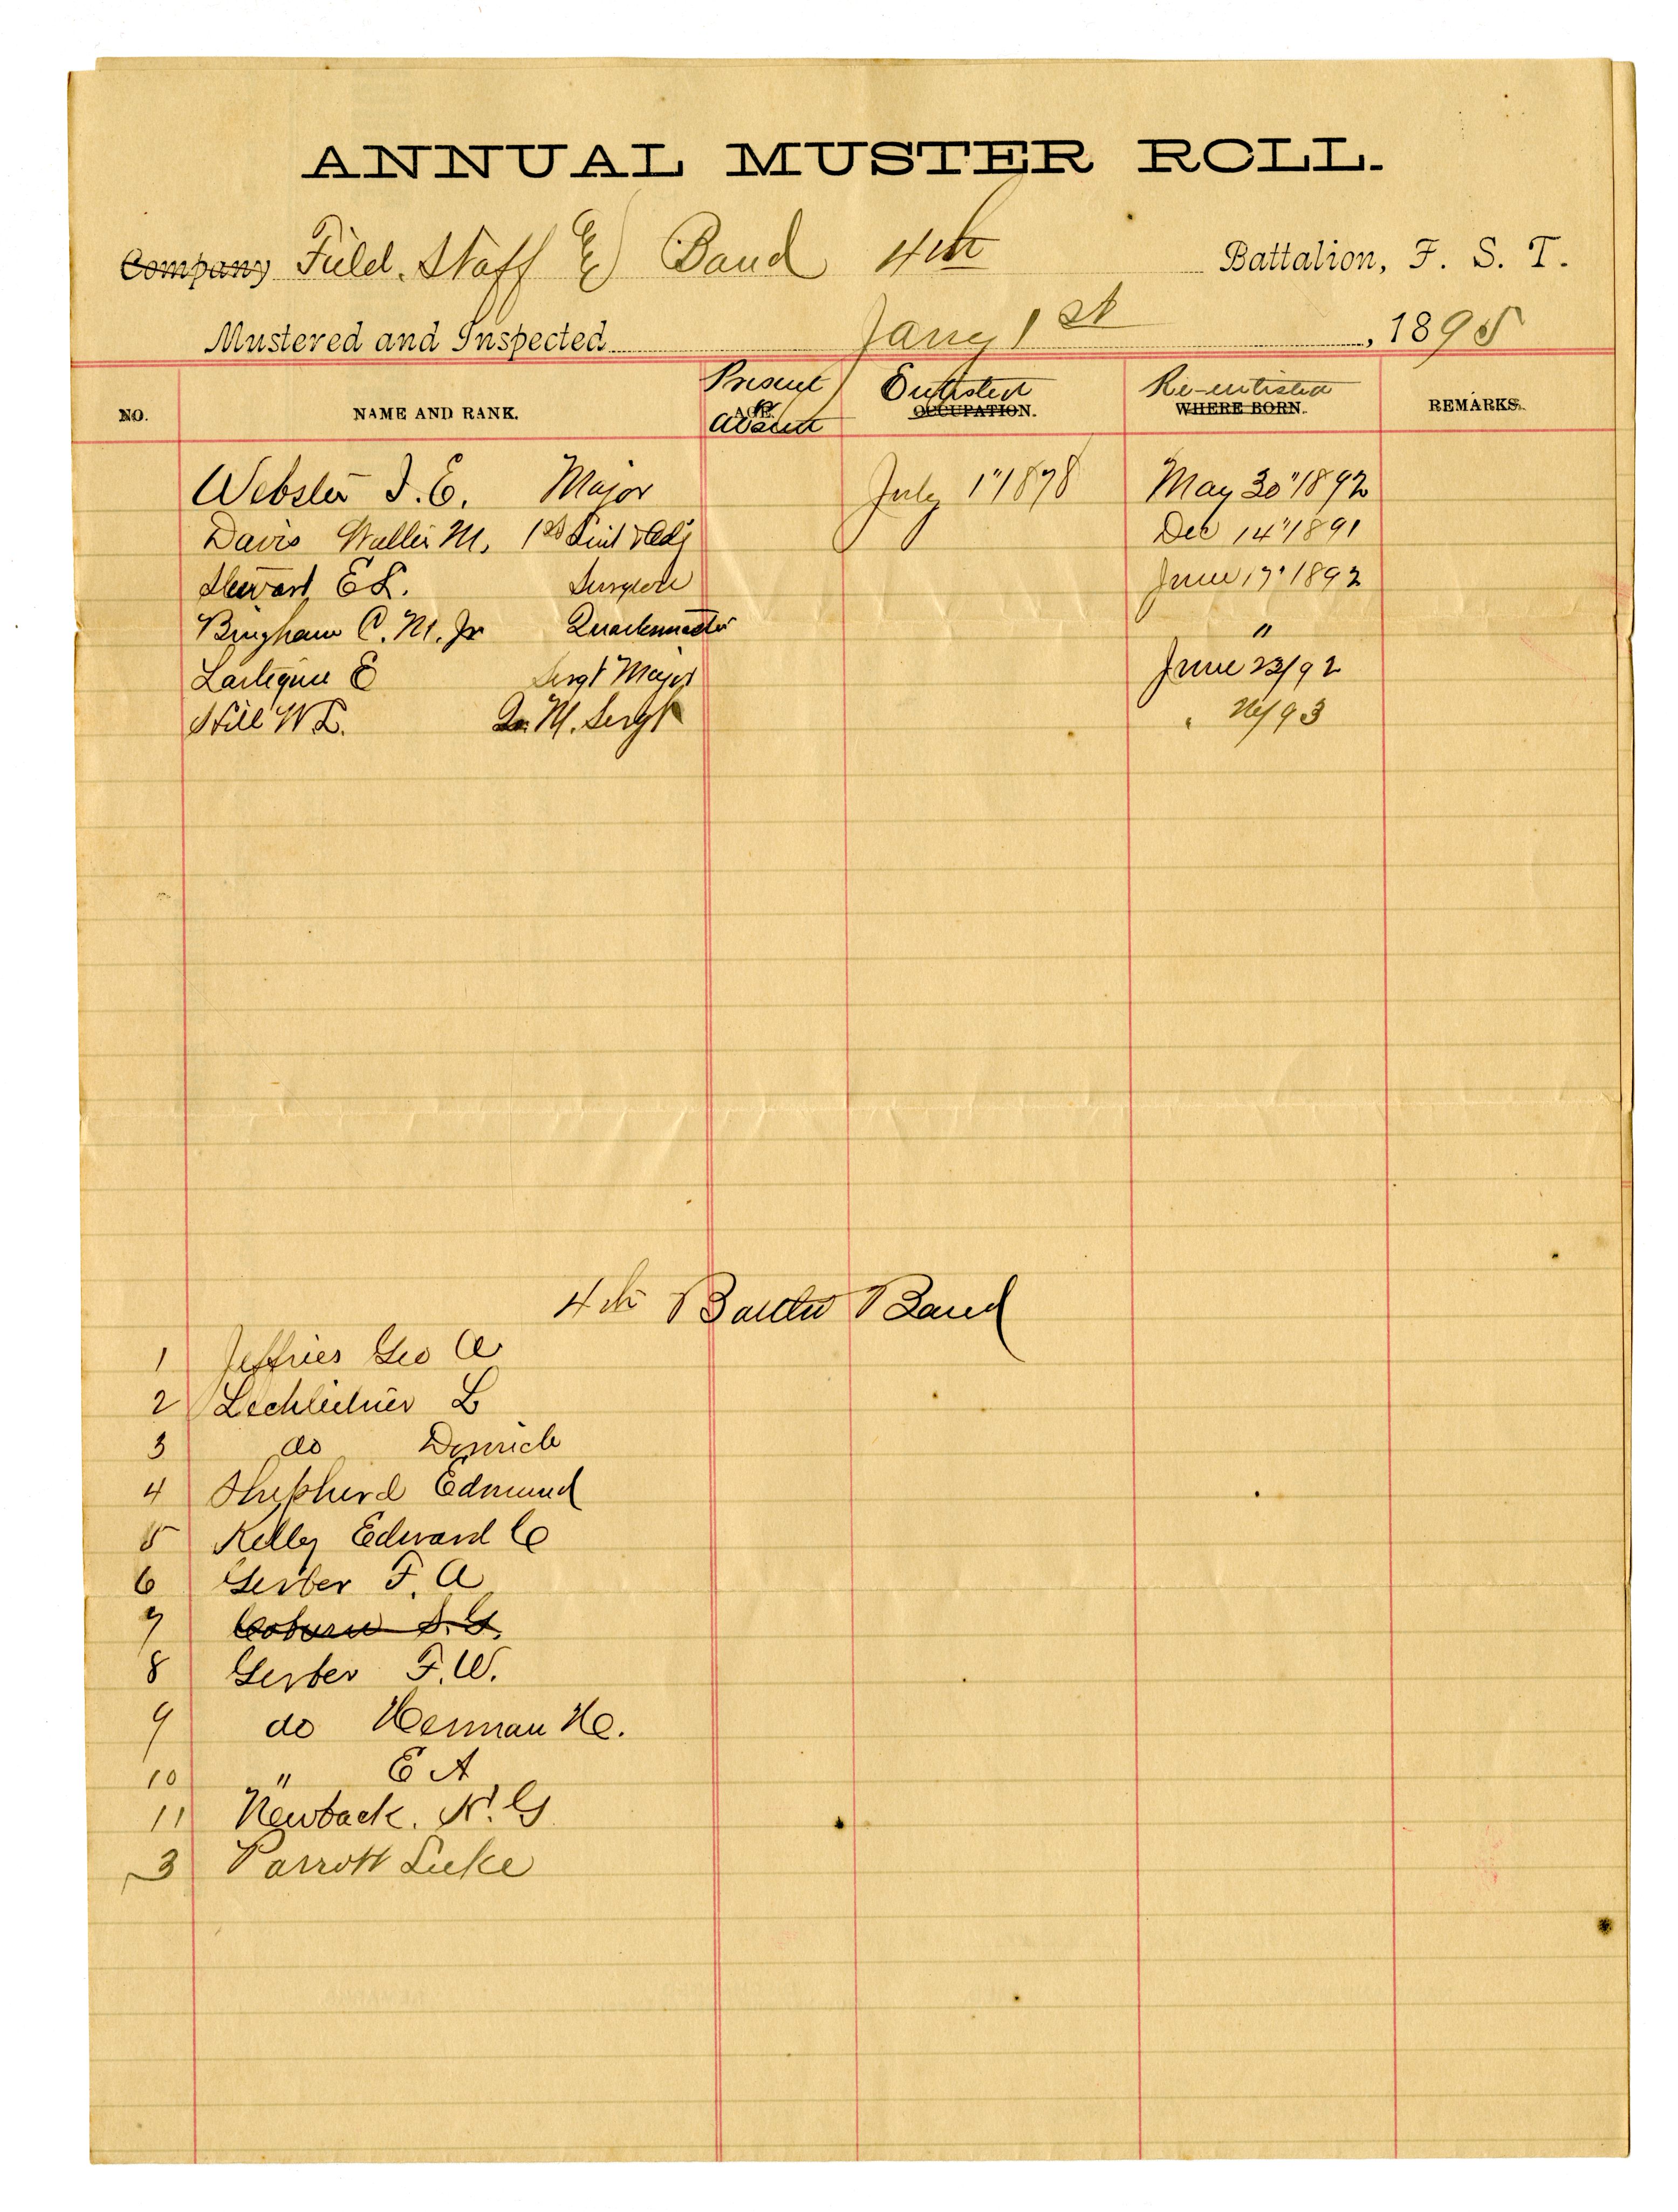 ANNUAL MUSTER ROLL.
Company Field. Staff & Band 4th Battalion, F. S. T.
Mustered and Inspected Jany 1st, 1895
NO. NAME AND RANK. Present or Absent AGE. Enlisted OCCUPATION. Re-enlisted WHERE BORN. REMARKS.
Webster J. E. Major July 1"1878 May 30"1892
Davis Walter M, 1st Lieut & Adj Dec 14"1891
Stewart E L. Surgeon June 17"1892
Bingham C. M. Jr Quartermaster "
Lartigue E Sergt Major June 23/92
Still W L. Qr. M. Sergt " 24/93
4th Battn Band
1 Jeffries Geo A
2 Lechleitner L
3 do
4 Shepherd Edmund
5 Kelly Edward C
6 Gerber F. A
7 Coburn S. G.
8 Gerber F. W.
9 do Herman H.
10 " E A
11 Newback. N. G
3 Parrott Luke